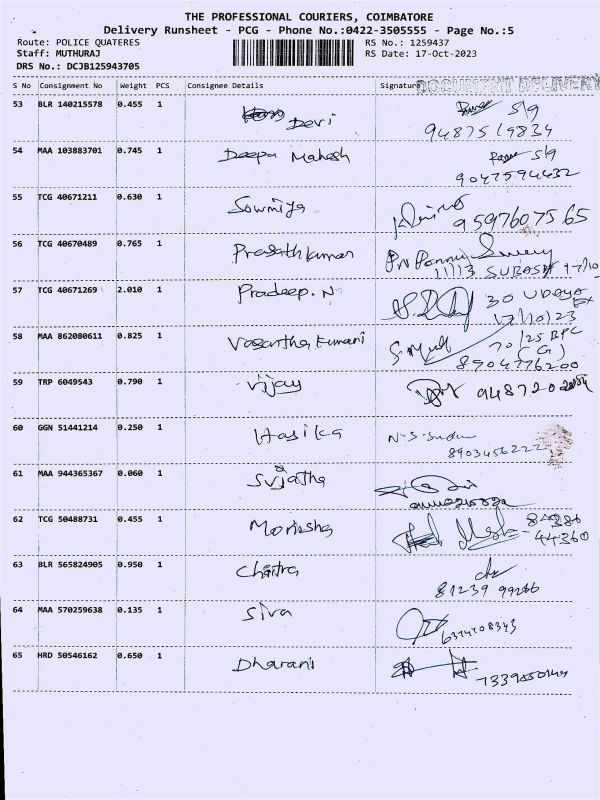 THE PROFESSIONAL COURIERS, COIMBATORE
Delivery Runsheet - PCG - Phone No.:0422-3505555 - Page No.:5
Route: POLICE QUATERES RS No.: 1259437
Staff: MUTHURAJ RS Date: 17-Oct-2023
DRS No.: DCJB125943705
S No Consignment No Weight PCS Consignee Details Signature DOCUMENT DELIVERY
53 BLR 140215578 0.455 1 Devi S/9
9487519834
54 MAA 103883701 0.745 1 Deepa Mahesh S/9
9047594432
55 TCG 40671211 0.630 1 Sowmiya
9597607565
56 TCG 40670489 0.765 1 Prasathkumar
11/13 SUBASH 17/10
57 TCG 40671269 2.010 1 Pradeep. N 30 Udaya
17/10/23
58 MAA 862080611 0.825 1 Vasantha Kumari 70/25 BPC
(G)
8904776200
59 TRP 6049543 0.790 1 Vijay
60 GGN 51441214 0.250 1 Hasika N.S.
8903456222
61 MAA 944365367 0.060 1 Sujatha
62 TCG 50488731 0.455 1 Monisha 84386
44360
63 BLR 565824905 0.950 1 Chitra
81239 99266
64 MAA 570259638 0.135 1 Siva
6374708343
65 HRD 50546162 0.650 1 Dharani